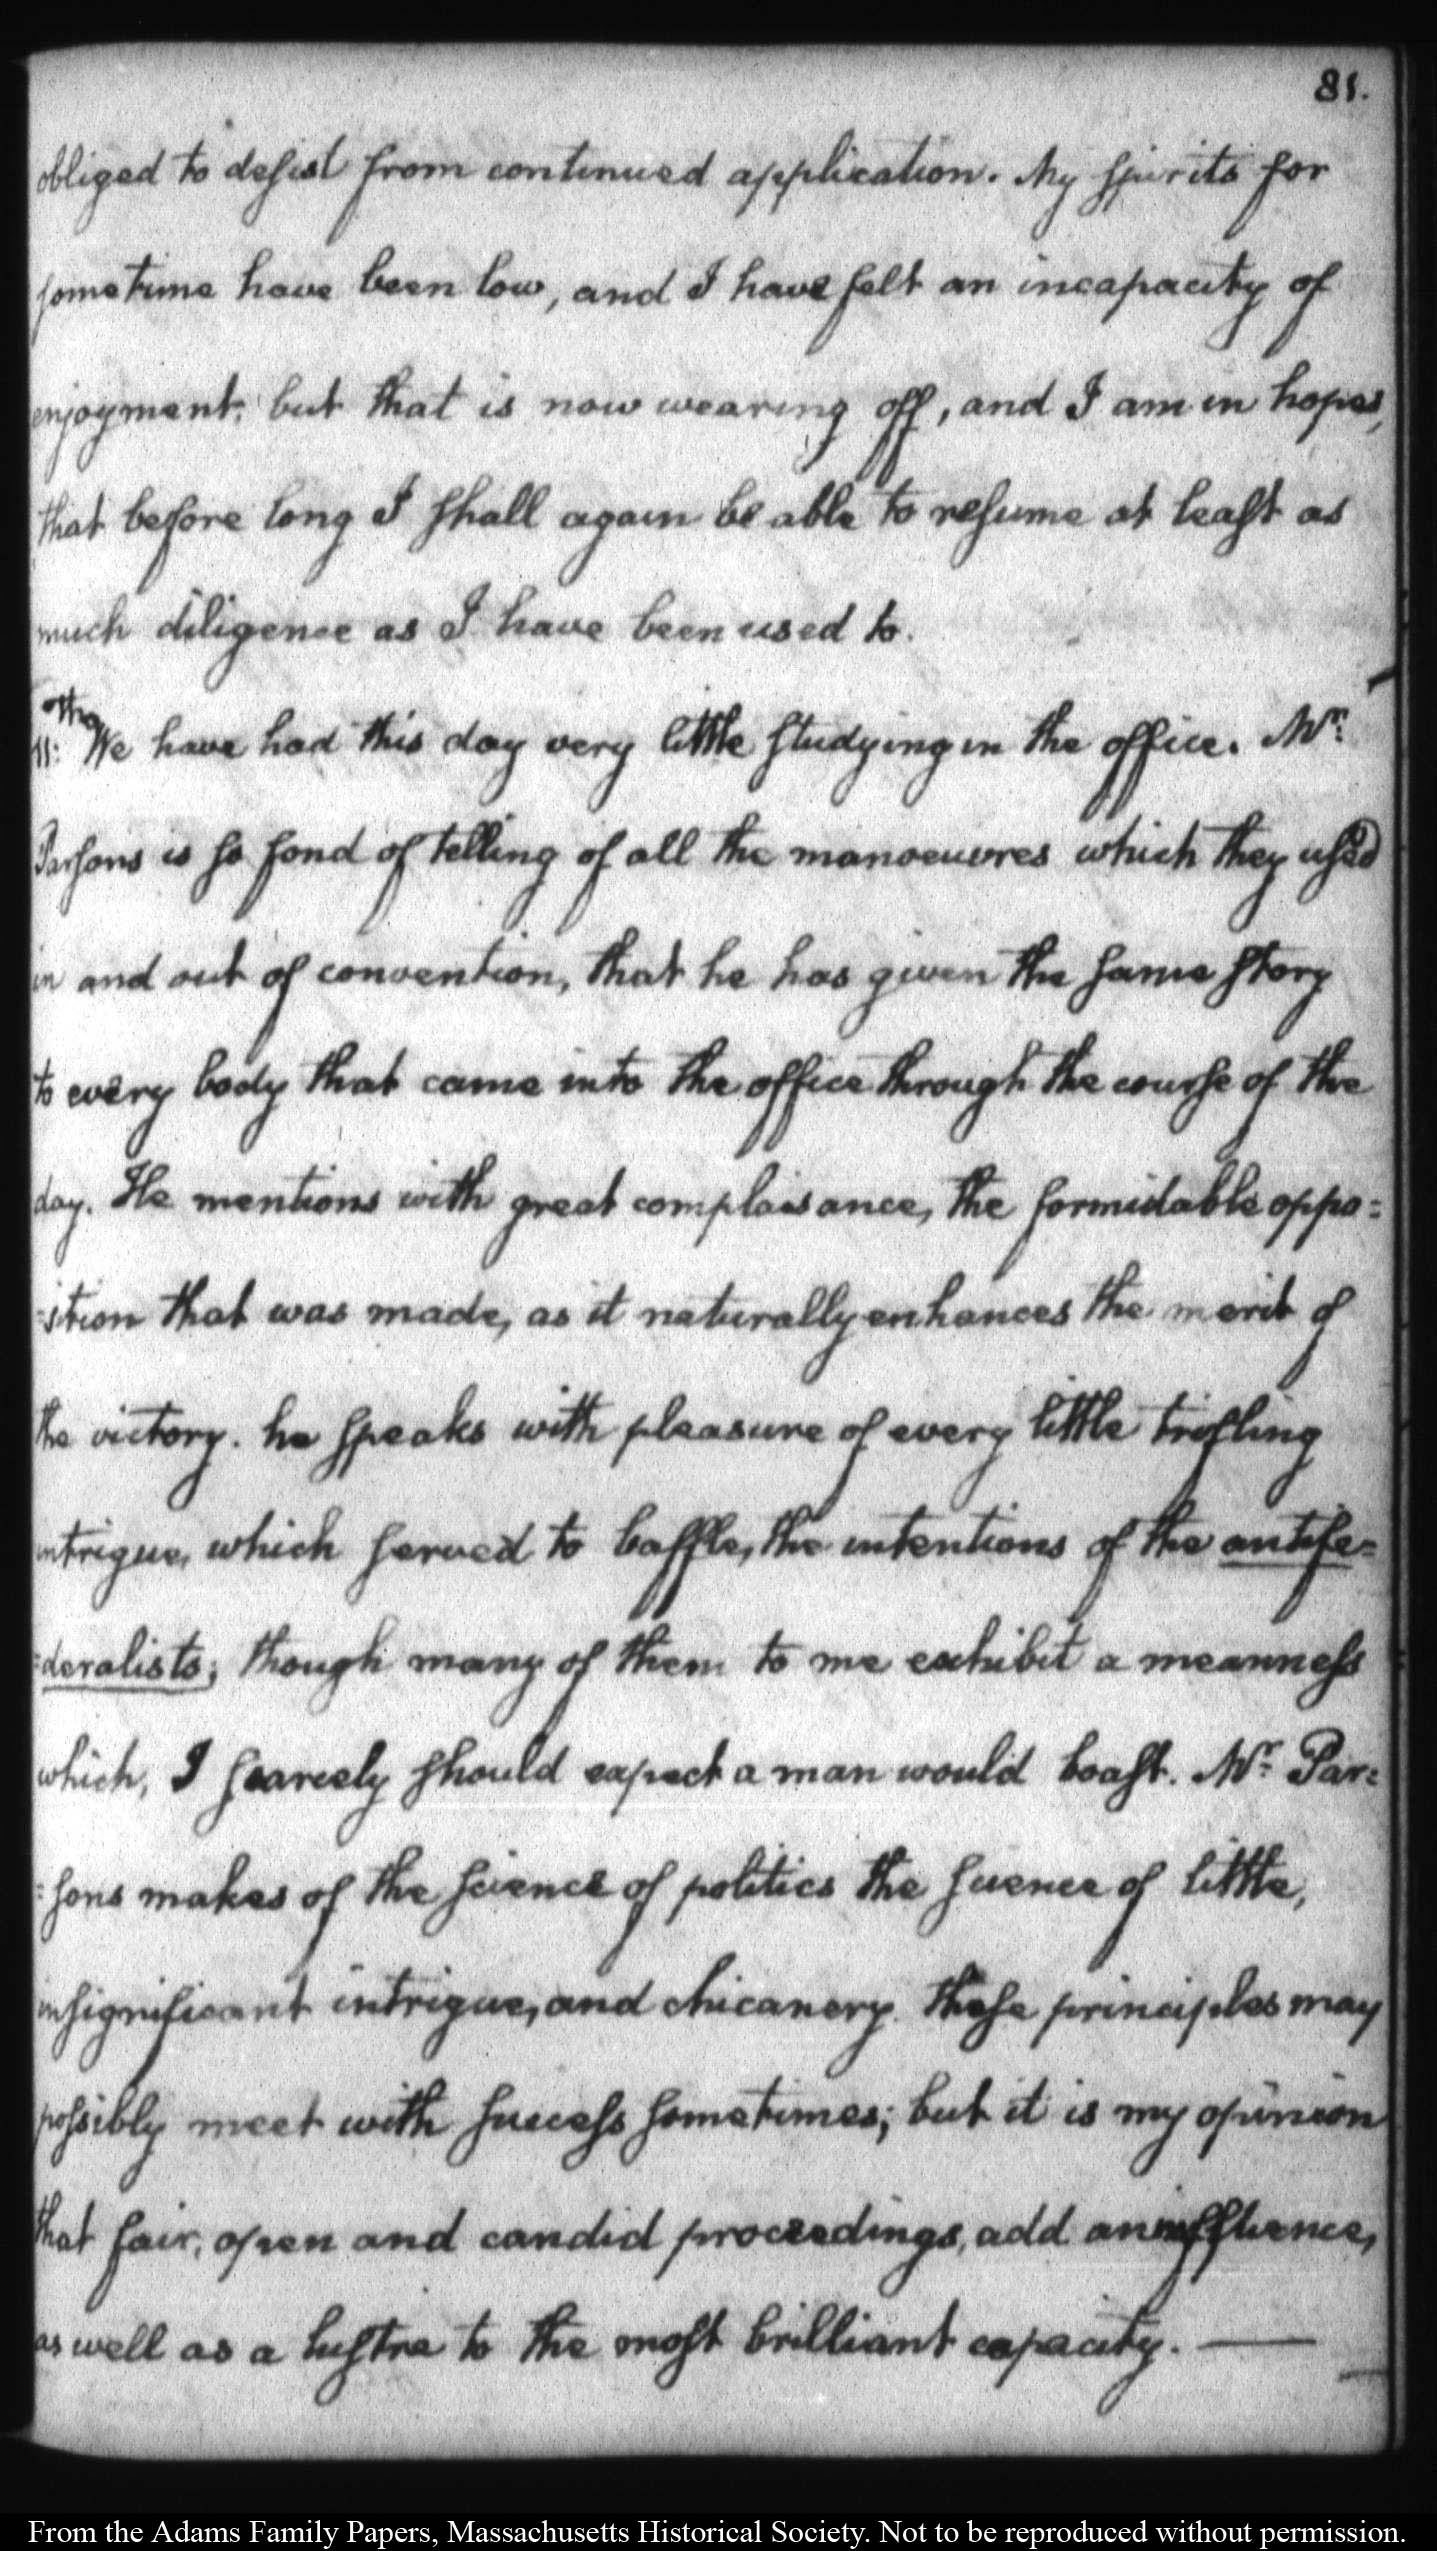 81.
obliged to desist from continued application. My spirits for
sometime have been low, and I have felt an incapacity of
enjoyment: but that is now wearing off, and I am in hopes,
that before long I shall again be able to resume at least as
much diligence as I have been used to.
11th: We have had this day very little studying in the office. Mr:
Parsons is so fond of telling of all the manoeuvres which they used
in and out of convention, that he has given the same story
to every body that came into the office through the course of the
day. He mentions with great complaisance, the formidable oppo=
=sition that was made, as it naturally enhances the merit of
the victory. he speaks with pleasure of every little trifling
intrigue, which served to baffle, the intentions of the antife=
=deralists; though many of them to me exhibit a meanness
which, I scarcely should expect a man would boast. Mr: Par=
=sons makes of the science of politics the science of little,
insignificant intrigue, and chicanery. these principles may
possibly meet with success sometimes; but it is my opinion
that fair, open and candid proceedings, add an influence,
as well as a lustre to the most brilliant capacity. —
From the Adams Family Papers, Massachusetts Historical Society. Not to be reproduced without permission.